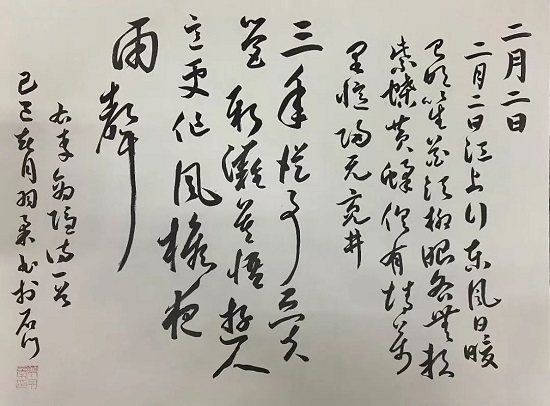 二月二日
二月二日江上行东风日暖
闻吹笙花须柳眼各無赖
紫蝶黄蜂俱有情万
里忆归元亮井
三年从事亚夫
營新灘莫悟游人
意更作风檐夜
雨聲
右李商隐诗一首
春月羽柔书於石门